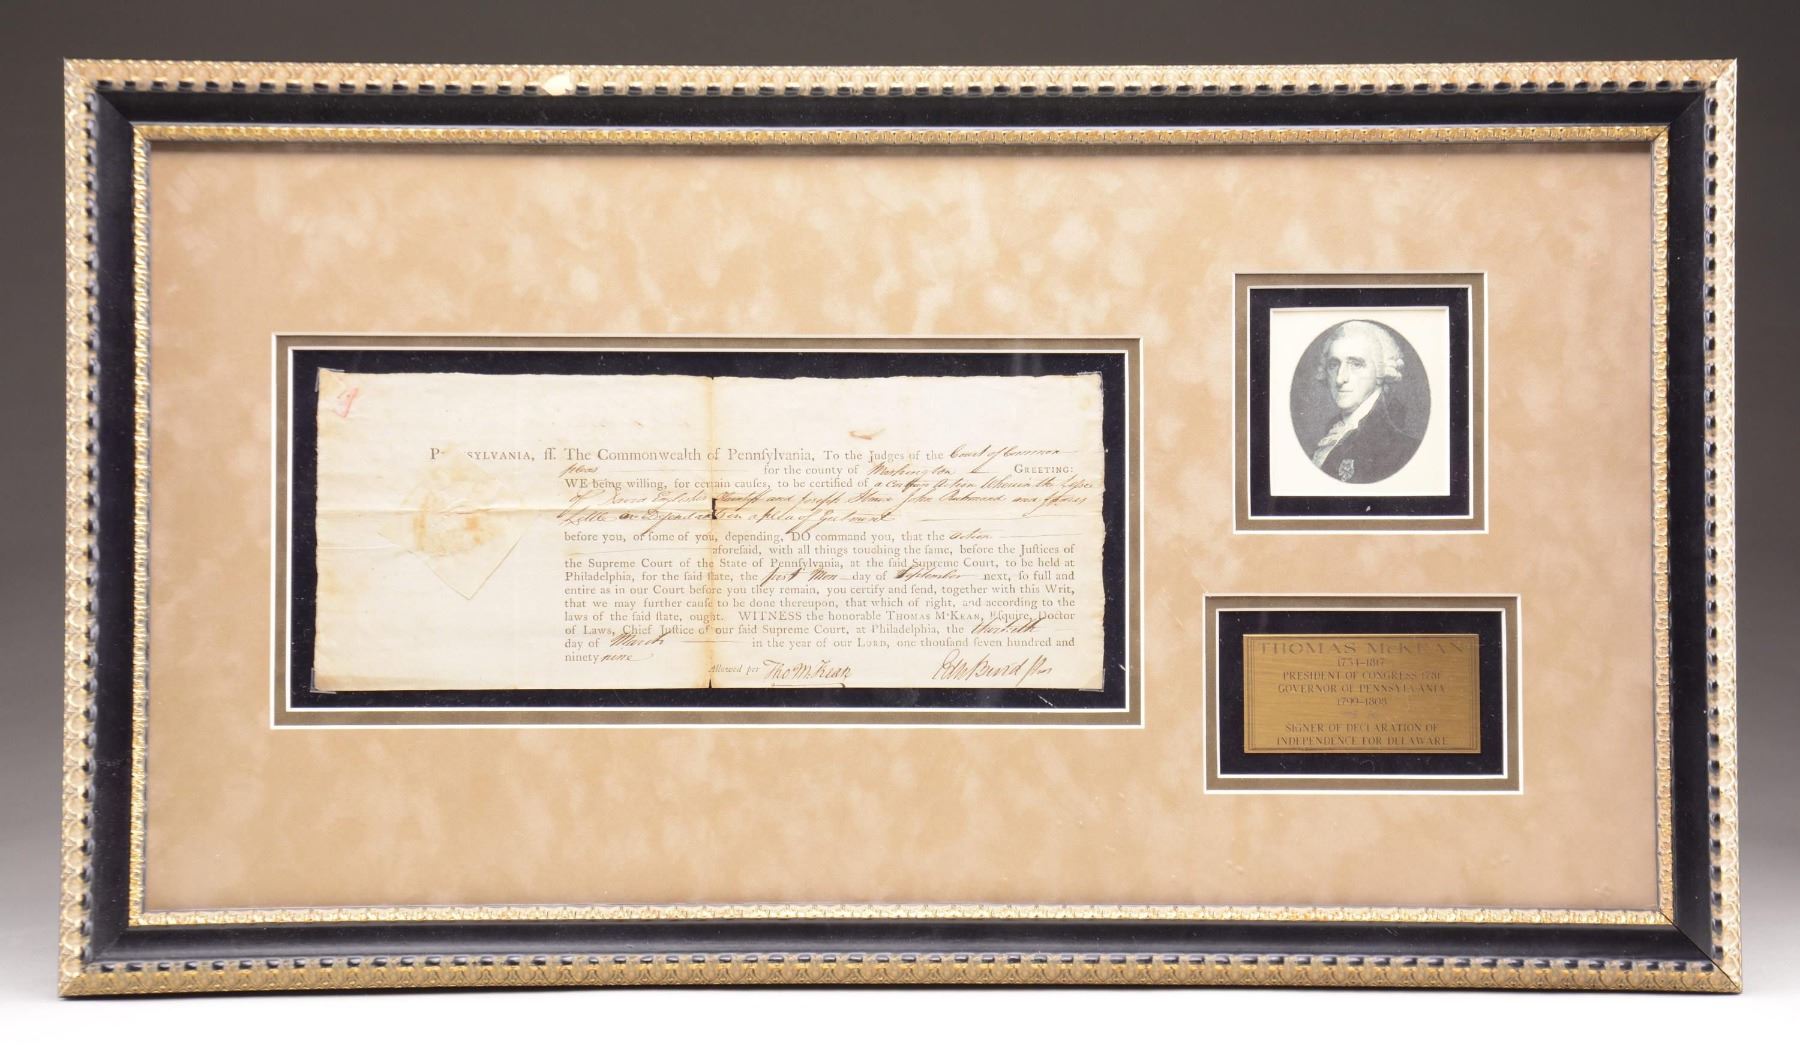 P SYLVANIA, ſſ. The Commonwealth of Pennſylvania, To the Judges of the Court of Common
pleas for the county of Washington GREETING:
WE being willing, for certain cauſes, to be certified of a certain Action Wherein the Lessee
of David English is Plaintiff and Joseph John and
Little are Defendants in a plea of Ejectment
before you, or ſome of you, depending, DO command you, that the action
aforeſaid, with all things touching the ſame, before the Juſtices of
the Supreme Court of the State of Pennſylvania, at the ſaid Supreme Court, to be held at
Philadelphia, for the ſaid ſtate, the first Mon day of September next, ſo full and
entire as in our Court before you they remain, you certify and ſend, together with this Writ,
that we may further cauſe to be done thereupon, that which of right, and according to the
laws of the ſaid ſtate, ought. WITNESS the honorable THOMAS M'KEAN, Eſquire, Doctor
of Laws, Chief Juſtice of our ſaid Supreme Court, at Philadelphia, the thirtieth
day of March in the year of our LORD, one thouſand ſeven hundred and
ninety nine
Allowed per Tho M:Kean Edw Burd
THOMAS McKEAN
1734-1817
PRESIDENT OF CONGRESS 1781
GOVERNOR OF PENNSYLVANIA
1799-1808
SIGNER OF DECLARATION OF
INDEPENDENCE FOR DELAWARE